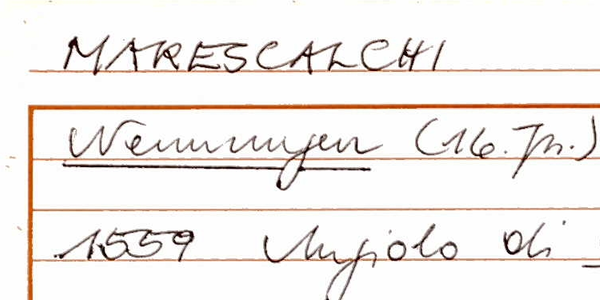 MARESCALCHI
Nennungen (16. Jh.)
1559 Angiolo di